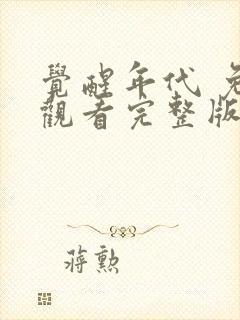 覺醒年代 免
觀看完整版
蔣勲